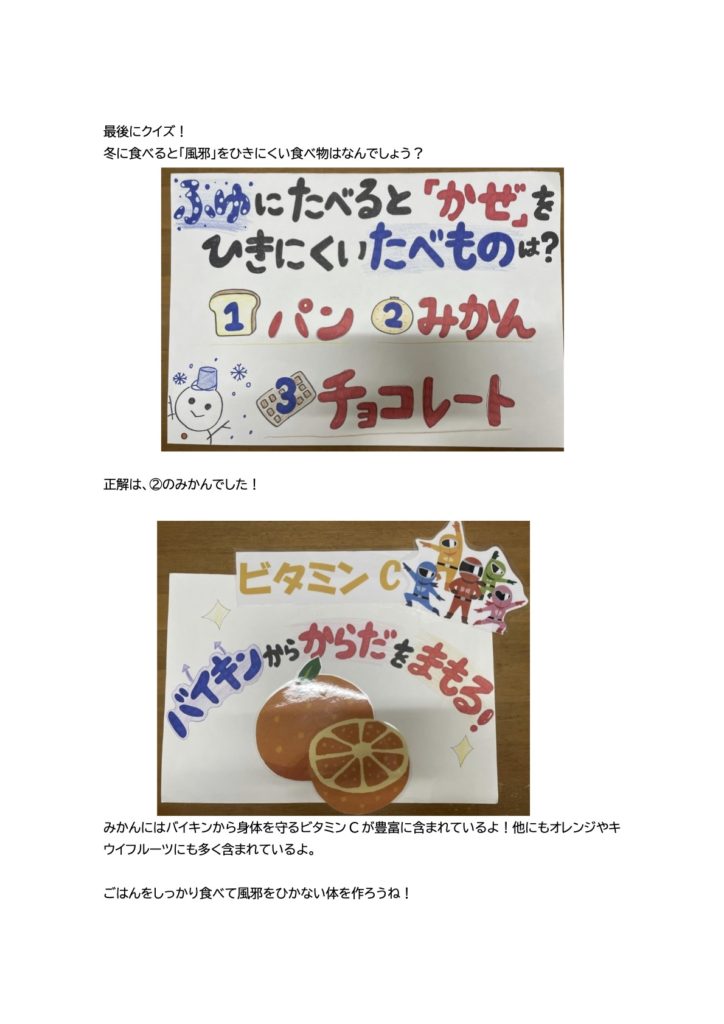 最後にクイズ！
冬に食べると「風邪」をひきにくい食べ物はなんでしょう？
ふゆにたべると「かぜ」を
ひきにくいたべものは?
1 パン 2 みかん
3 チョコレート
正解は、②のみかんでした！
ビタミンC
バイキンからからだをまもる!
みかんにはバイキンから身体を守るビタミンCが豊富に含まれているよ！他にもオレンジやキ
ウイフルーツにも多く含まれているよ。
ごはんをしっかり食べて風邪をひかない体を作ろうね！